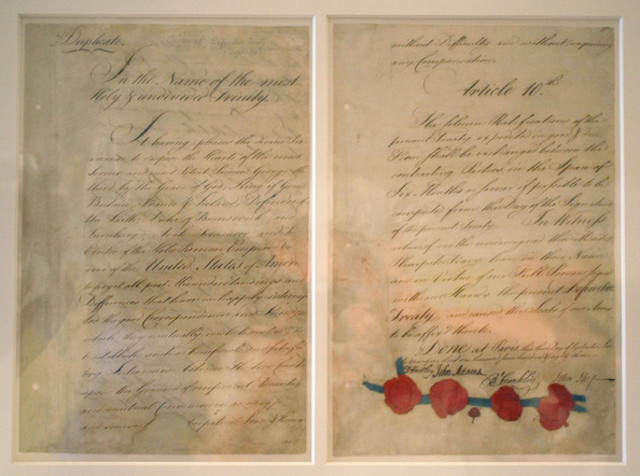 Duplicate.
In the Name of the most
Holy & undivided Trinity.
It having pleased the Divine Pro
vidence to dispose the Hearts of the most
Serene and most Potent Prince George the
third, by the Grace of God, King of Great
Britain, France & Ireland, Defender of
the Faith, Duke of Brunswick and
Lunebourg, Arch Treasurer and
Elector of the Holy Roman Empire &c
and of the United States of America
to forget all past Misunderstandings and
Differences that have unhappily interrup
ted the good Correspondence and
which they mutually wish to
establish such a beneficial and satisfac
tory Intercourse between the two Countries
upon the Ground of reciprocal
and mutual Convenience as may
and secure
without Difficulty and without requiring
any Compensation.
Article 10th.
The solemn Ratifications of the
present Treaty expedited in good & due
Form shall be exchanged between the
contracting Parties in the Space of
Six Months or sooner if possible to be
computed from the Day of the Signature
of the present Treaty. In Witness
whereof we the undersigned their Ministers
Plenipotentiary have in their Name
and in Virtue of our Full Powers signed
with our Hands the present Definitive
Treaty, and caused the Seals of our Arms
to be affix'd thereto.
Done at Paris, this third Day of September
D Hartley John Adams B Franklin John Jay